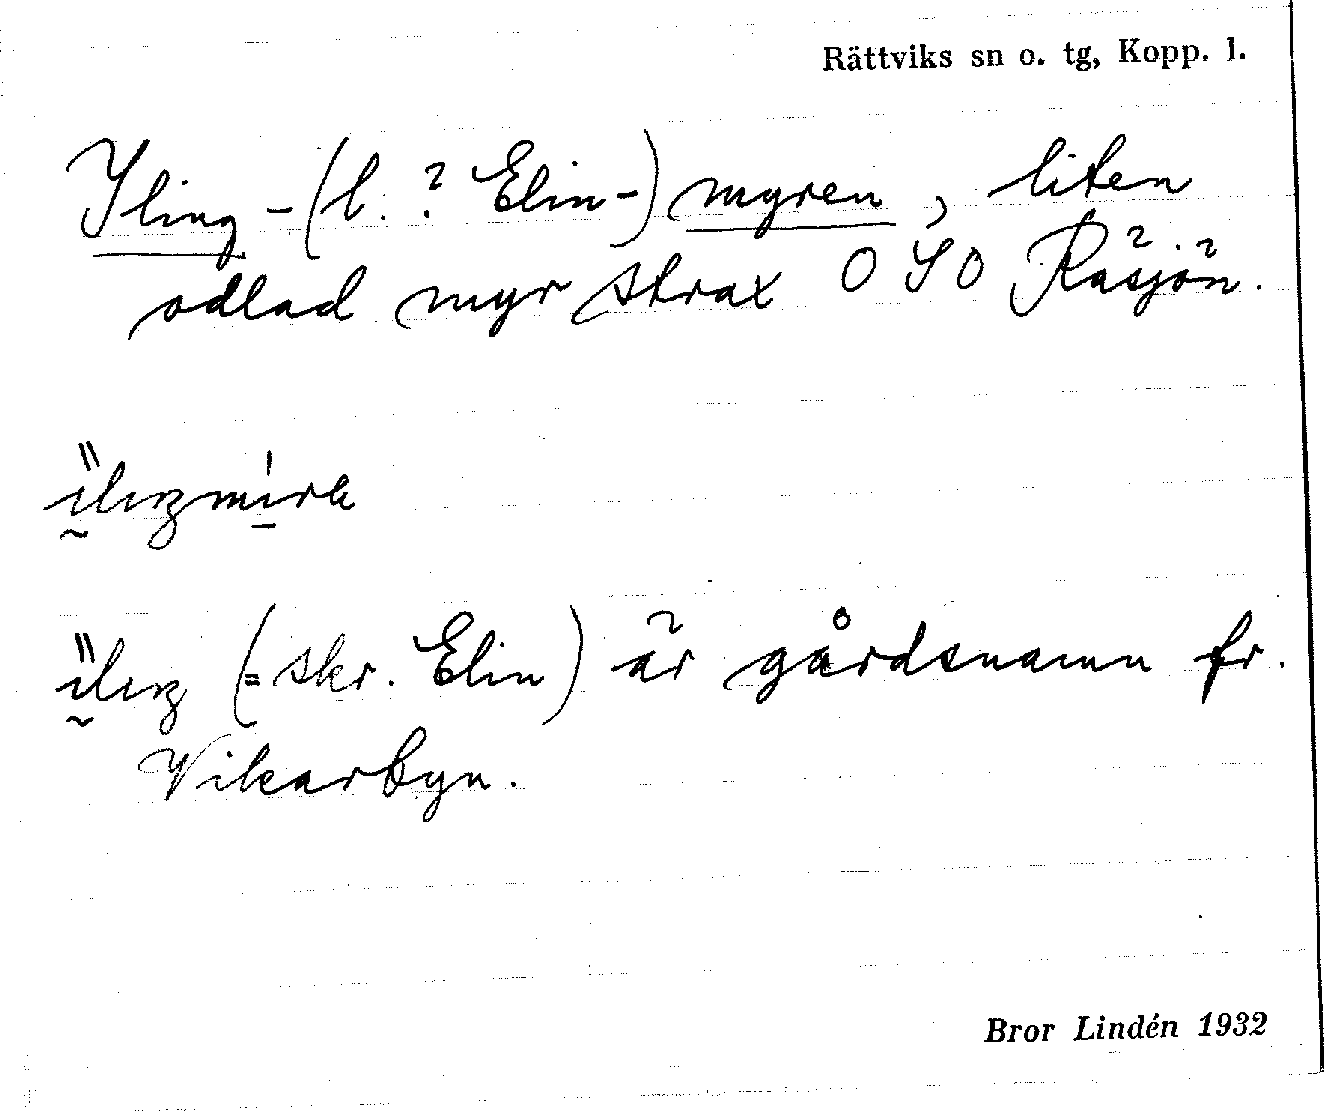 Rättviks sn o. tg, Kopp. l.
Yling-(l. ? Elin-)myren, liten
odlad myr strax OSO Räsjön.
(= skr. Elin) är gårdsnamn fr.
Vikarbyn.
Bror Lindén 1932